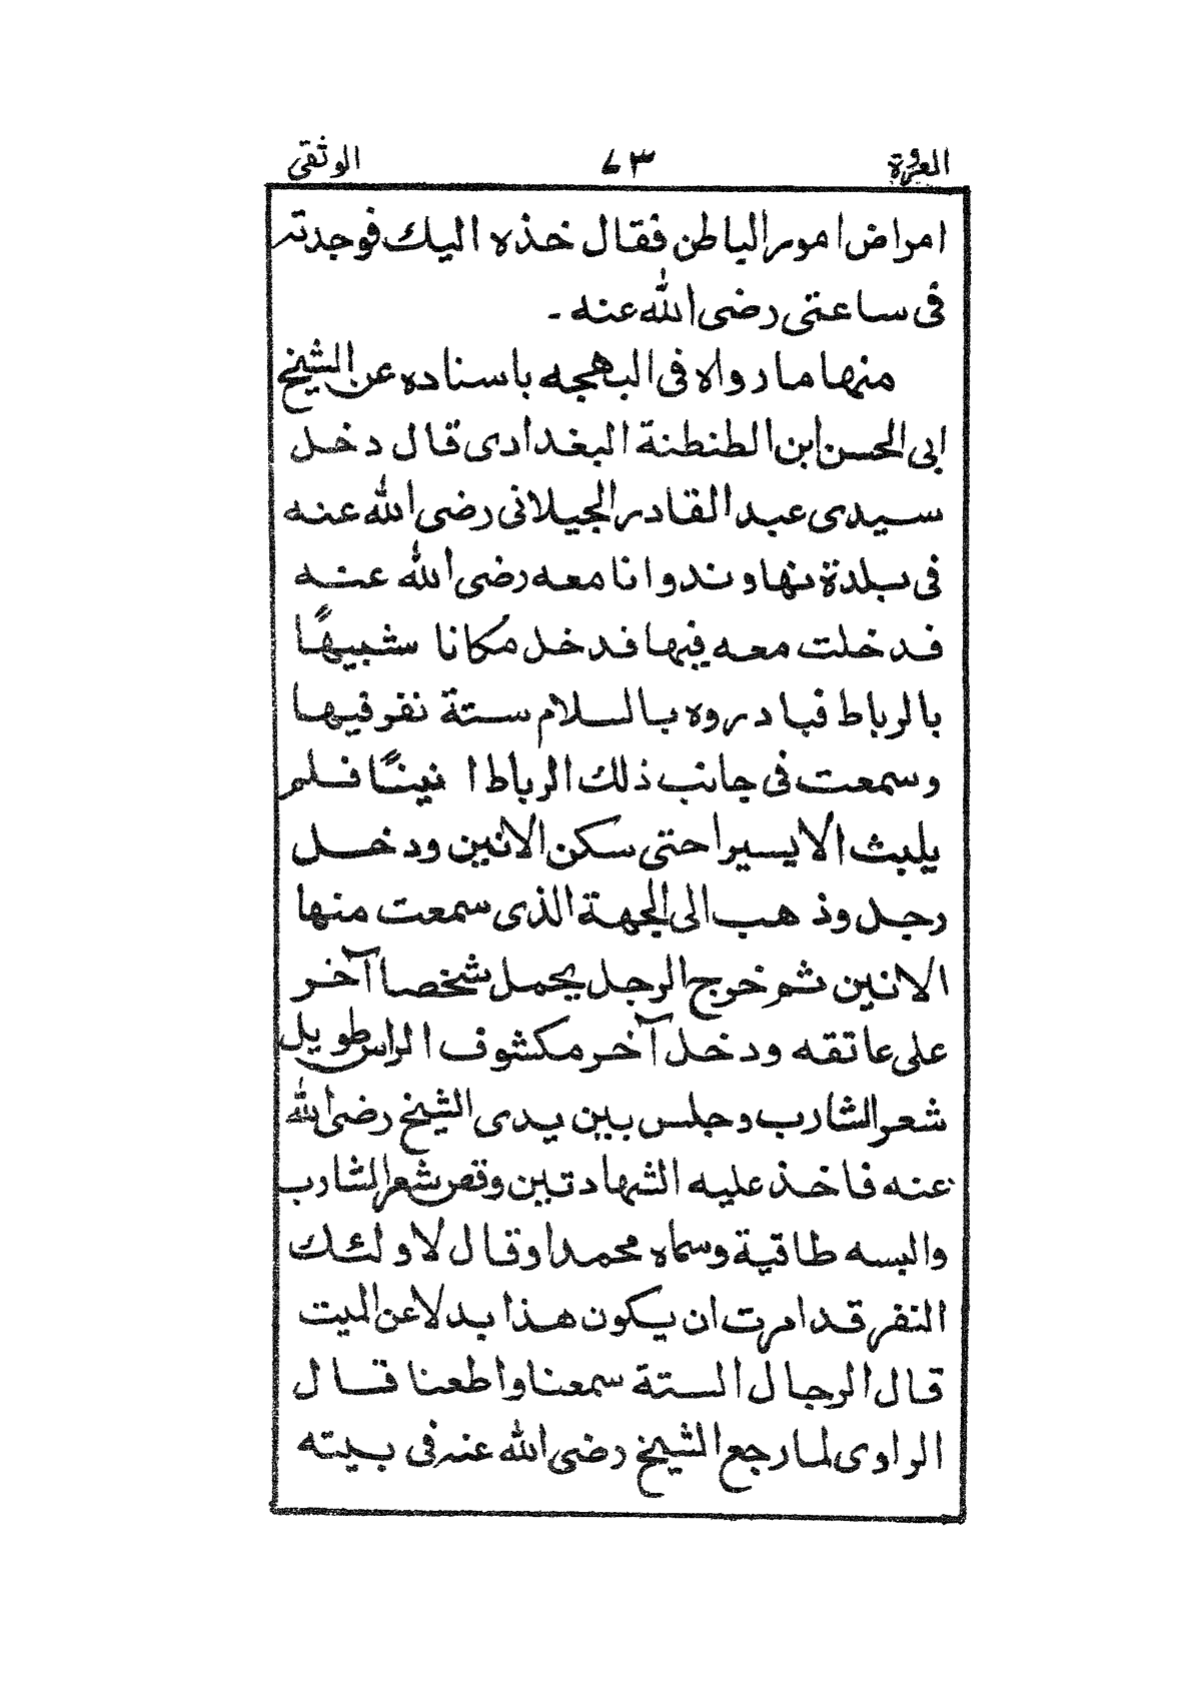 العروة ٧٣ الوثقى
امراض امور الباطن فقال خذه اليك فوجدته
فى ساعتى رضى الله عنه -
منها ما رواه فى البهجه باسناده عن الشيخ
ابى الحسن ابن الطنطنة البغدادى قال دخل
سيدى عبد القادر الجيلانى رضى الله عنه
فى بلدة نهاوند وانا معه رضى الله عنه
فدخلت معه فيها فدخل مكانا شبيهًا
بالرباط فبادروه بالسلام ستة نفر فيها
وسمعت فى جانب ذلك الرباط انينًا فلم
يلبث الا يسيرا حتى سكن الانين ودخل
رجل وذهب الى الجهة الذى سمعت منها
الانين ثم خرج الرجل يحمل شخصا آخر
على عاتقه ودخل آخر مكشوف الراس طويل
شعر الشارب وجلس بين يدى الشيخ رضى الله
عنه فاخذ عليه الشهادتين وقص شعر الشارب
والبسه طاقية وسماه محمدا وقال لاولئك
النفر قد امرت ان يكون هذا بدلا عن الميت
قال الرجال الستة سمعنا واطعنا قال
الراوى لما رجع الشيخ رضى الله عنه فى بيته